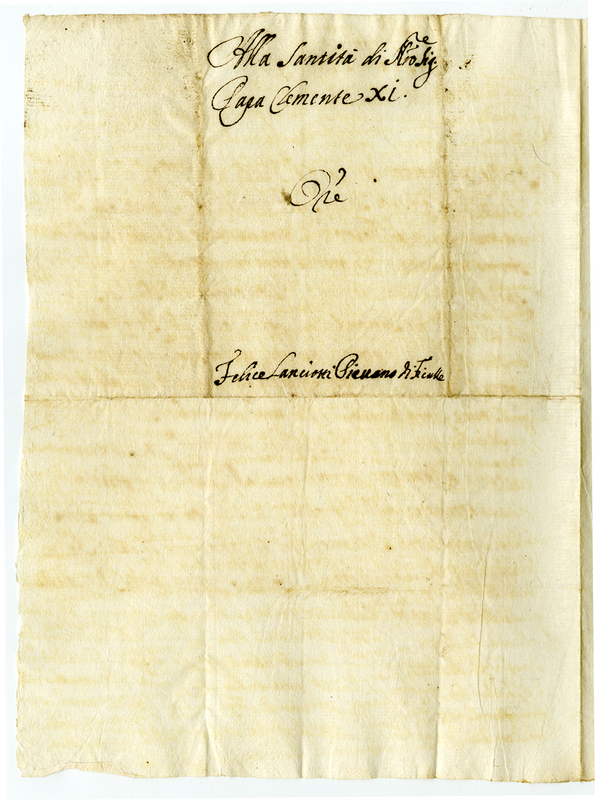 Alla Santità di Nro Sigre
Papa Clemente XI.
Pre
Felice Lanciotti Pievano di Ficulle